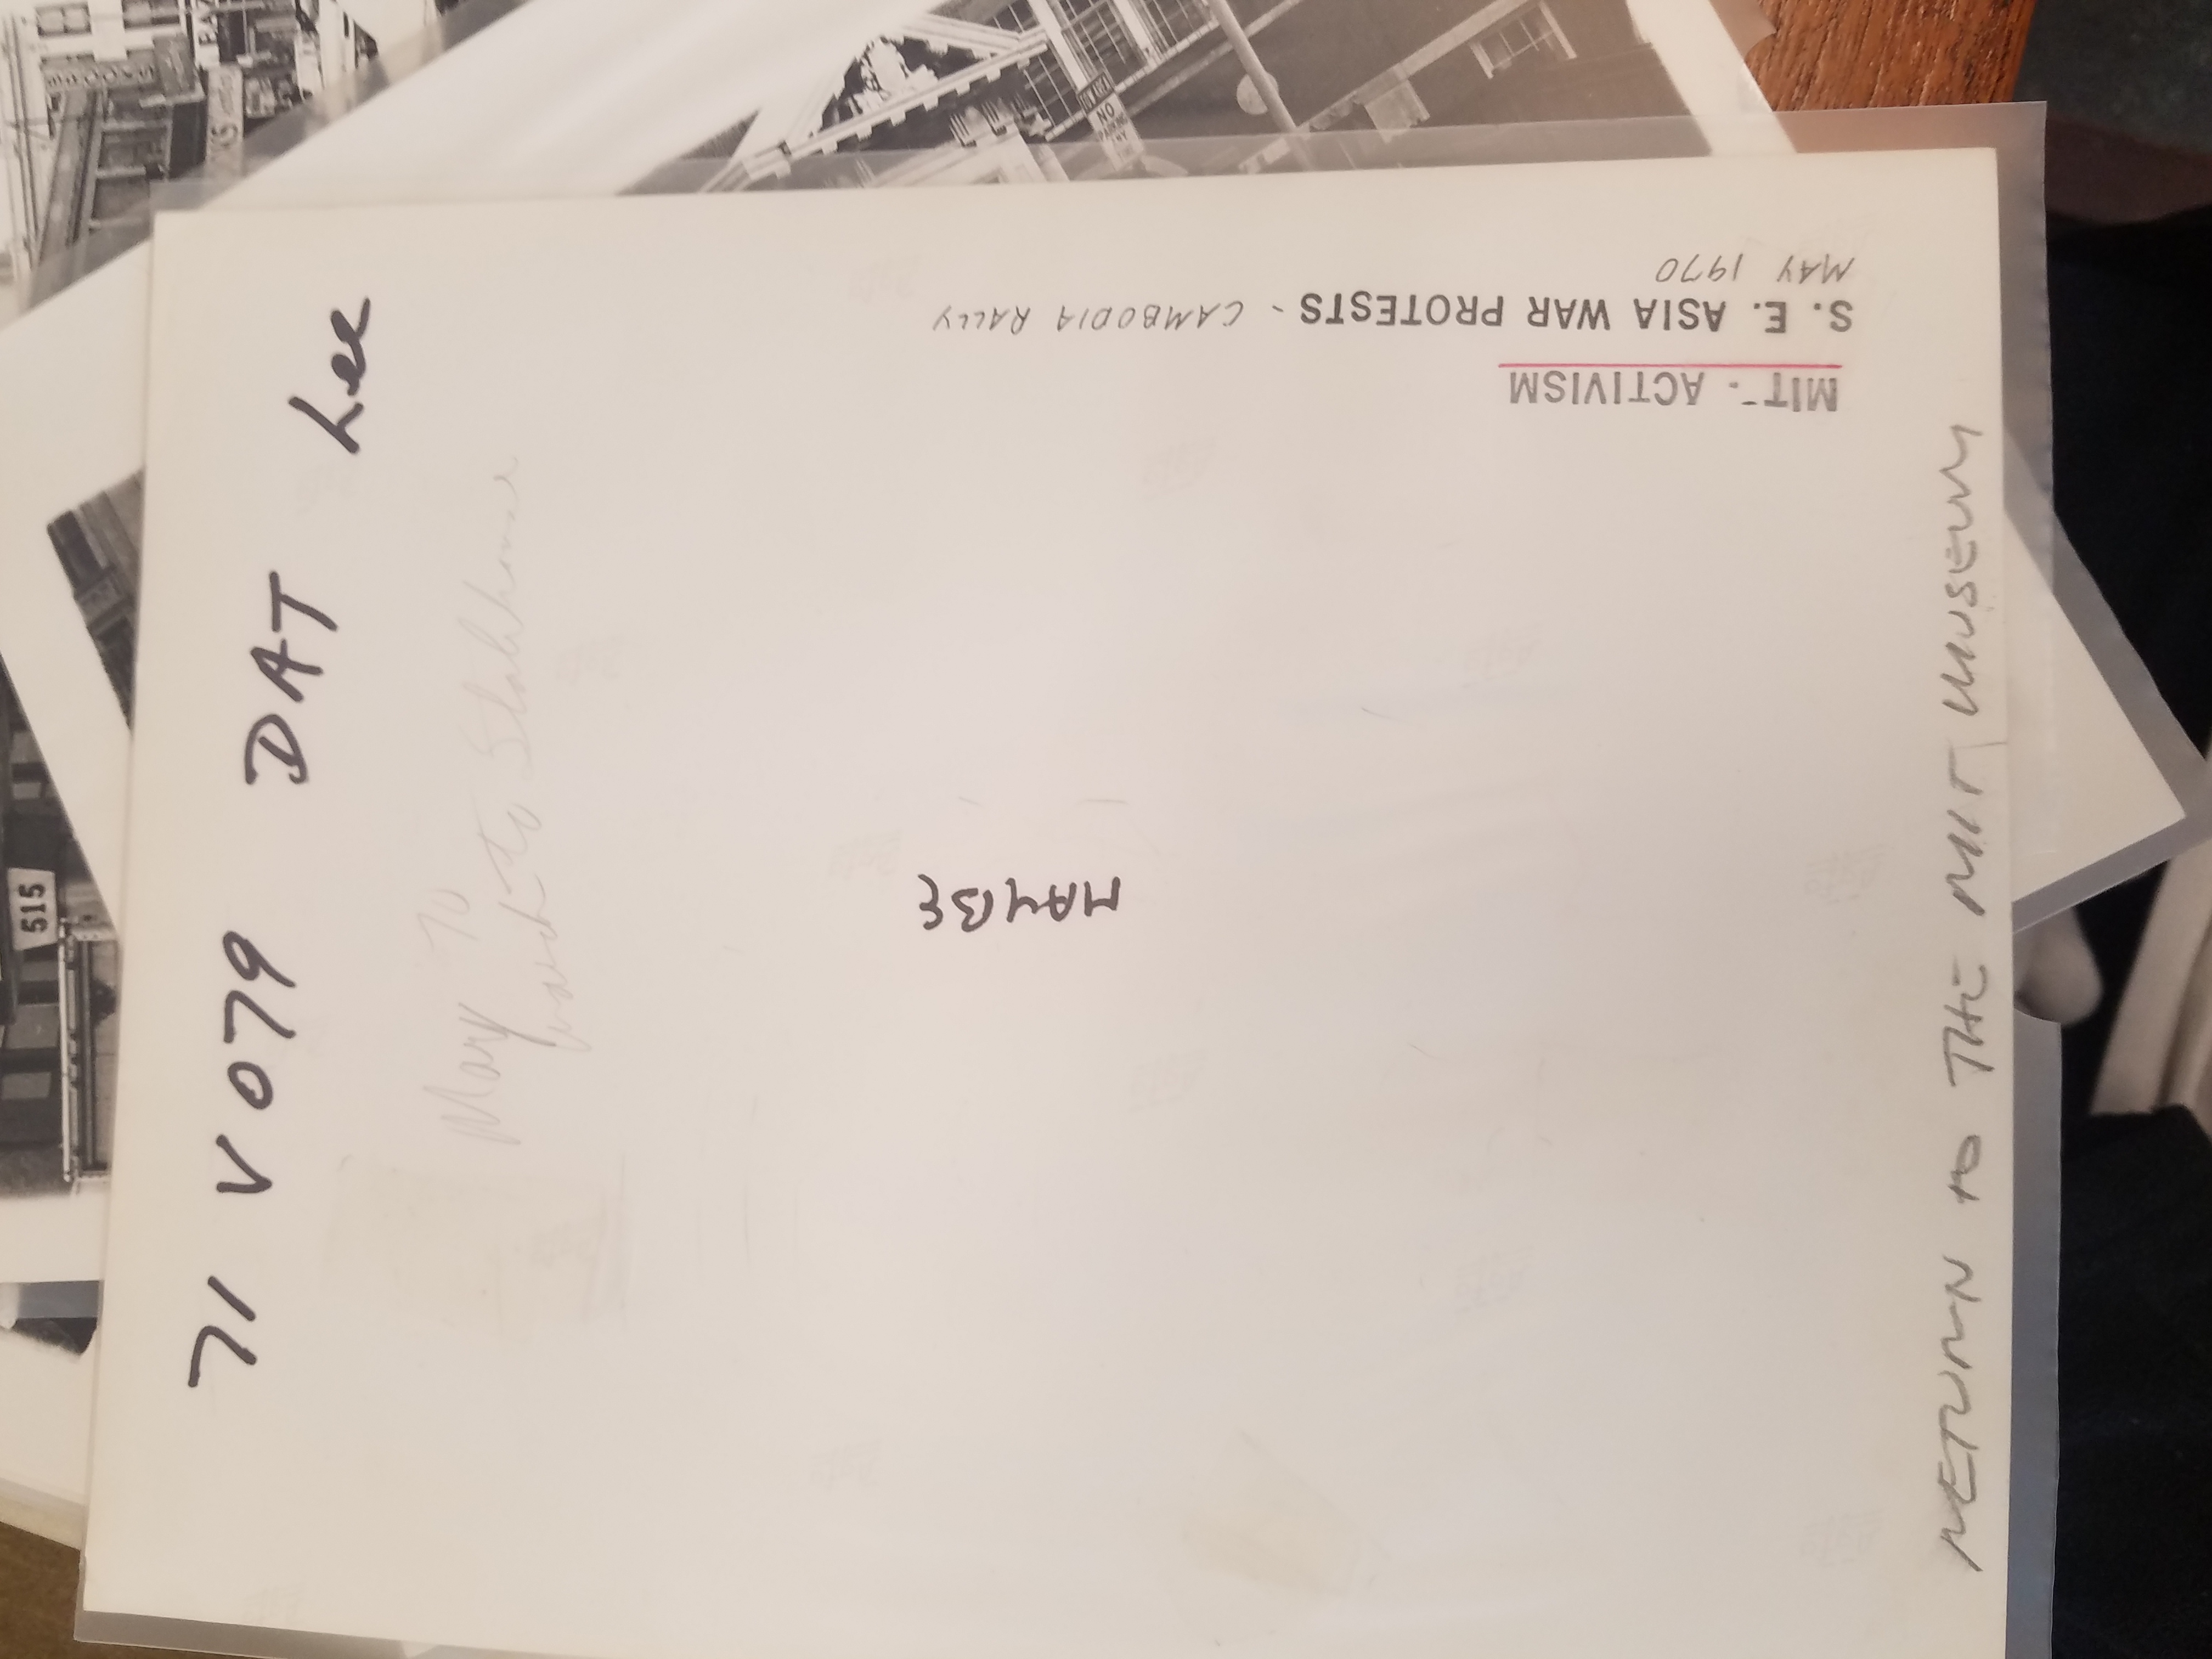 515
71 V 079 DAT Lee
May 70
march to Statehouse
MAYBE
MIT - ACTIVISM
S. E. ASIA WAR PROTESTS - CAMBODIA RALLY
MAY 1970
RETURN TO THE MIT MUSEUM
NO